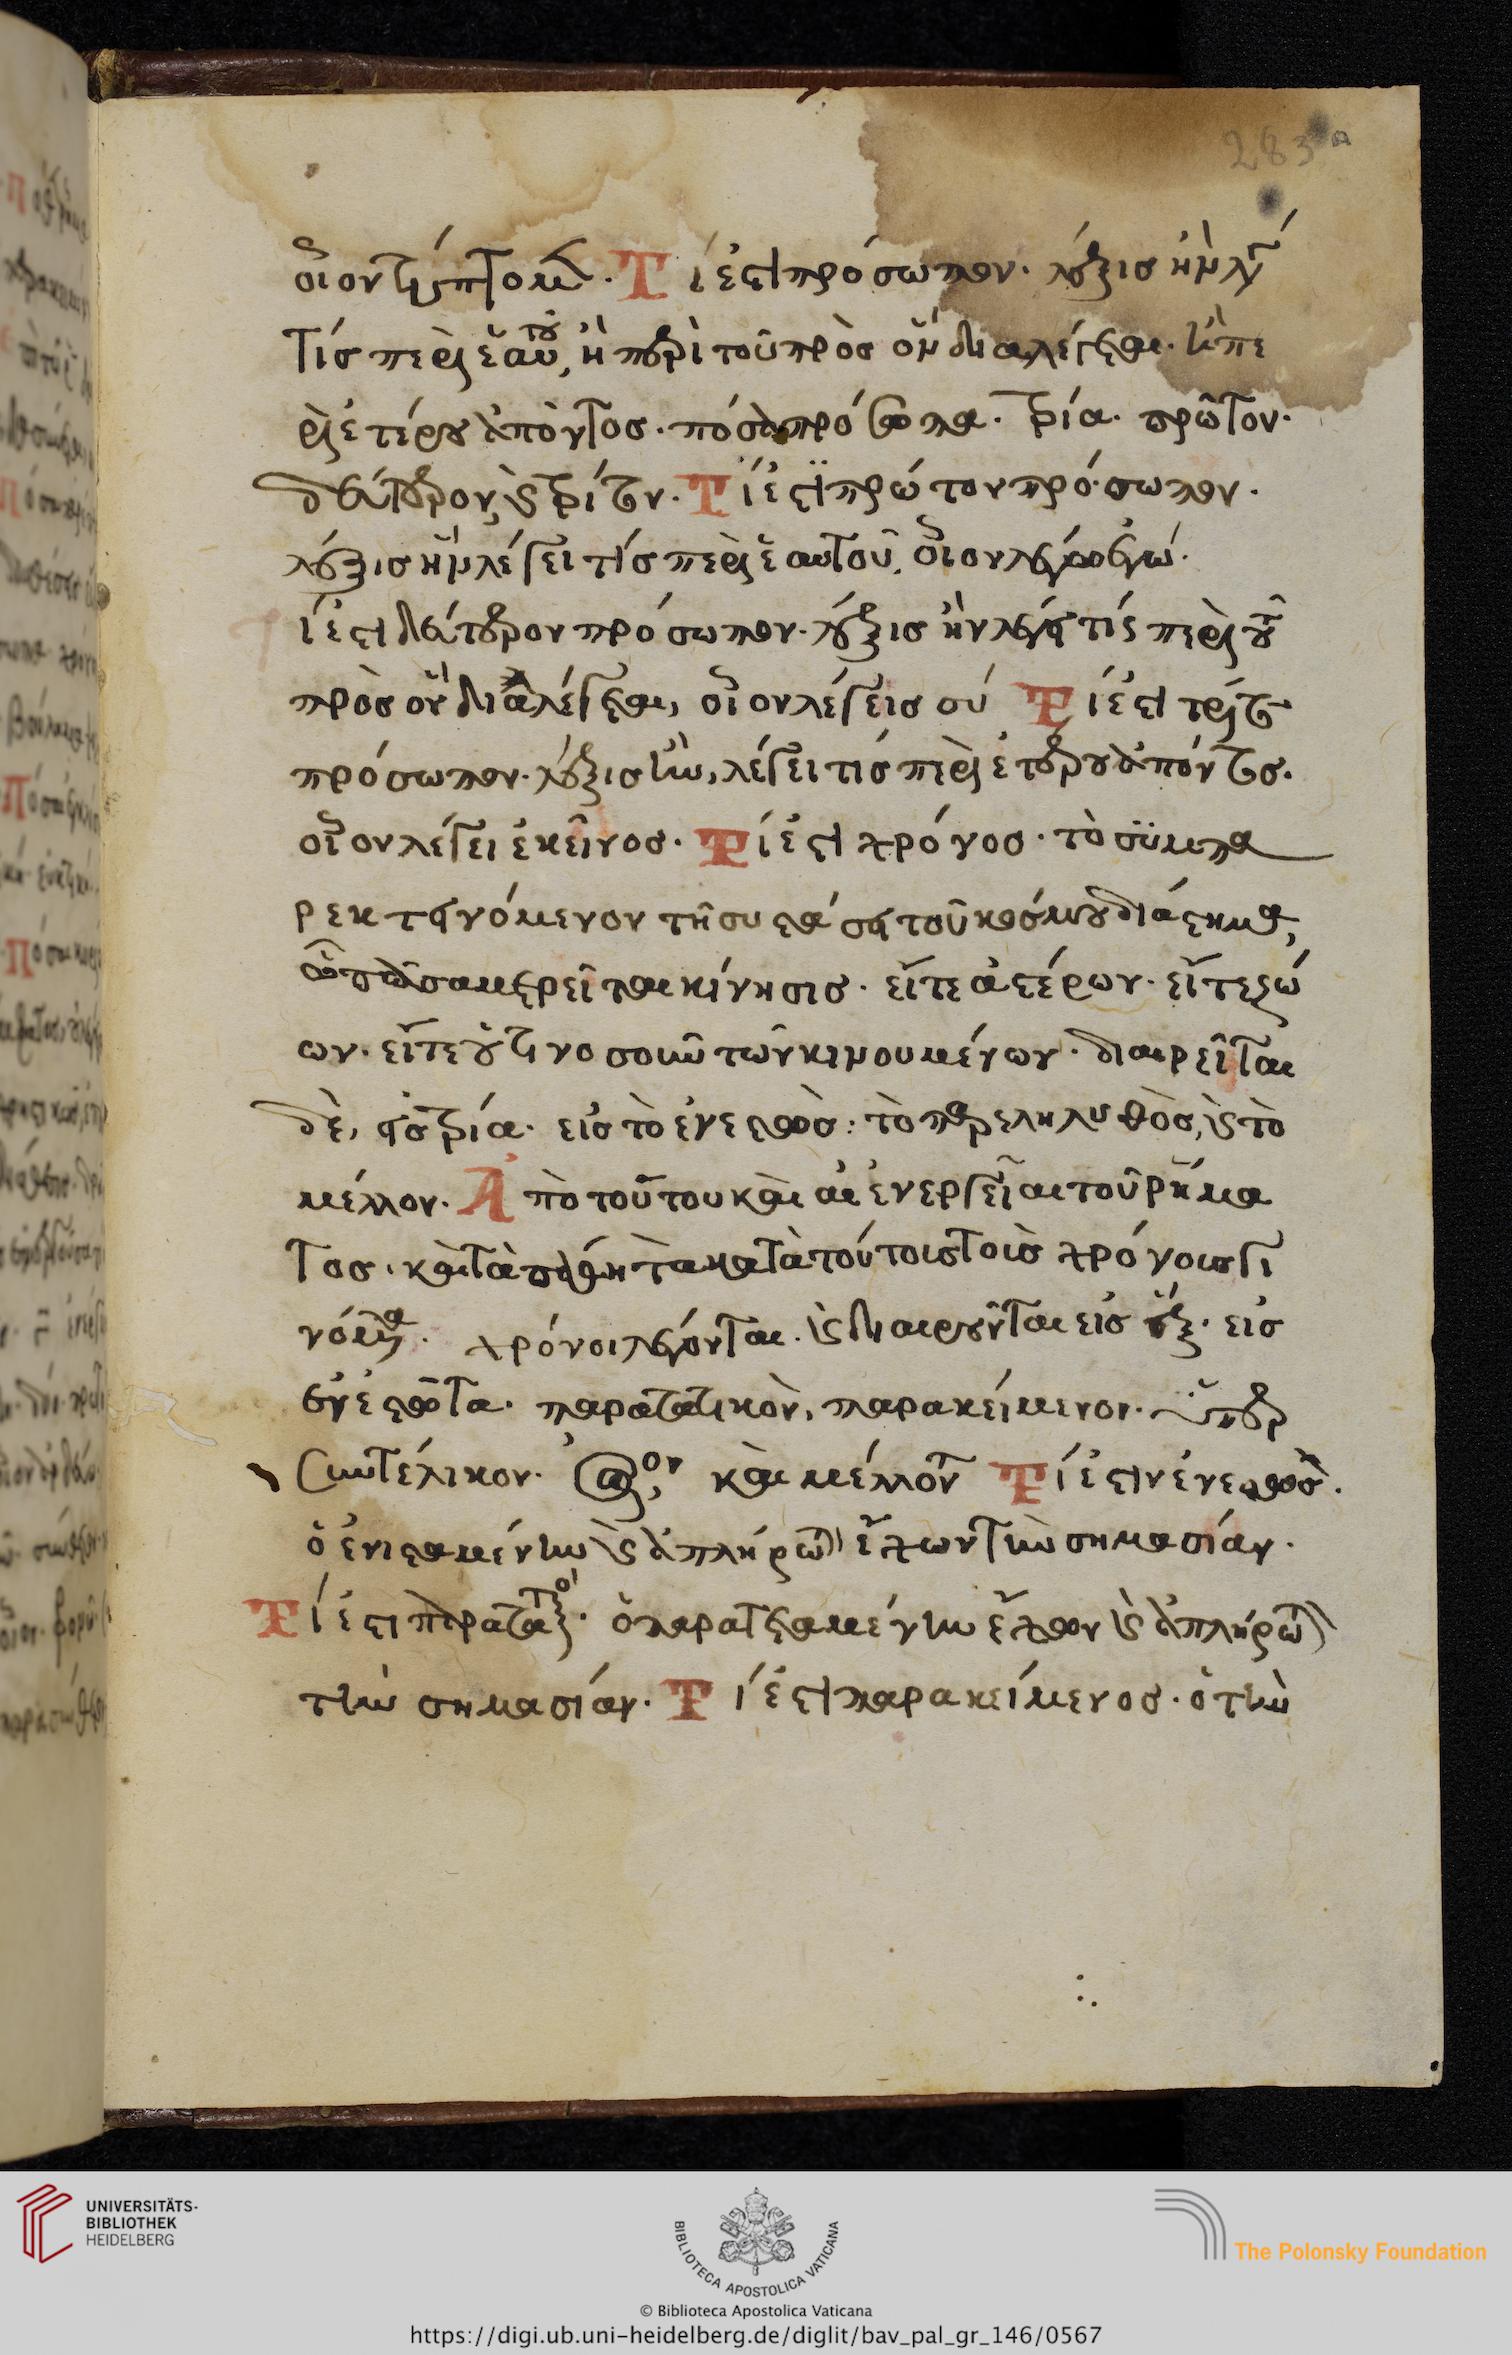 283a
οἷον τύπτομαι. Τί ἐστι πρόσωπον. λέξις ἣν λέγει
τίς περὶ ἑαυτοῦ, ἢ περὶ τοῦ πρὸς ὃν διαλέγεται. ἢ πε
ρὶ ἑτέρου ἀπόντος. πόσα πρόσωπα. τρία. πρῶτον.
δεύτερον, καὶ τρίτον. Τί ἐστι πρώτον πρόσωπον.
λέξις ἣν λέγει τίς περὶ ἑαυτοῦ, οἷον λέγω ἐγώ.
Τί ἐστι δεύτερον πρόσωπον. λέξις ἣν λέγει τίς περὶ τοῦ
πρὸς ὃν διαλέγεται, οἷον λέγεις σύ Τί ἐστι τρίτον
πρόσωπον. λέξις ἣν, λέγει τις περὶ ἑτέρου ἀπόντος.
οἷον λέγει ἐκεῖνος. Τί ἐστι χρόνος. τὸ σύμπα
ρεκτεινόμενον τῆ συστάσει τοῦ κόσμου διάστημα,
ᾧ πᾶσα μετρεῖται κίνησις. εἴτε ἀστέρων. εἴτε ζώ
ων. εἴτε οὕτινοσοιοῦν τῶν κινουμένων. διαιρεῖται
δὲ, εἰς τρία. εἰς τὸ ἐνεστὼς: τὸ παρεληλυθὸς, καὶ τὸ
μέλλον. Ἀπὸ τούτου καὶ αἱ ἐνέργειαι τοῦ ῥήμα
τος. καὶ τὰ πάθη τὰ κατὰ τούτοις τοῖς χρόνοις γι
νόμενα. χρόνοι λέγονται. καὶ διαιροῦνται εἰς ἕξ. εἰς
ἐνεστῶτα. παρατατικὸν, παρακείμενον. ὑπερ
συντέλικον. ἀόριστον, καὶ μέλλοντα Τί ἐστιν ἐνεστώς.
ὁ ἐνισταμένην καὶ ἀπλήρωτον ἔχων τὴν σημασίαν.
Τί ἐστι παρατατικός. ὁ παρατεταμένην ἔχων καὶ ἀπλήρωτον
τὴν σημασίαν. Τί ἐστι παρακείμενος. ὁ τὴν
UNIVERSITÄTS-
BIBLIOTHEK
HEIDELBERG
BIBLIOTECA APOSTOLICA VATICANA
The Polonsky Foundation
© Biblioteca Apostolica Vaticana
https://digi.ub.uni-heidelberg.de/diglit/bav_pal_gr_146/0567